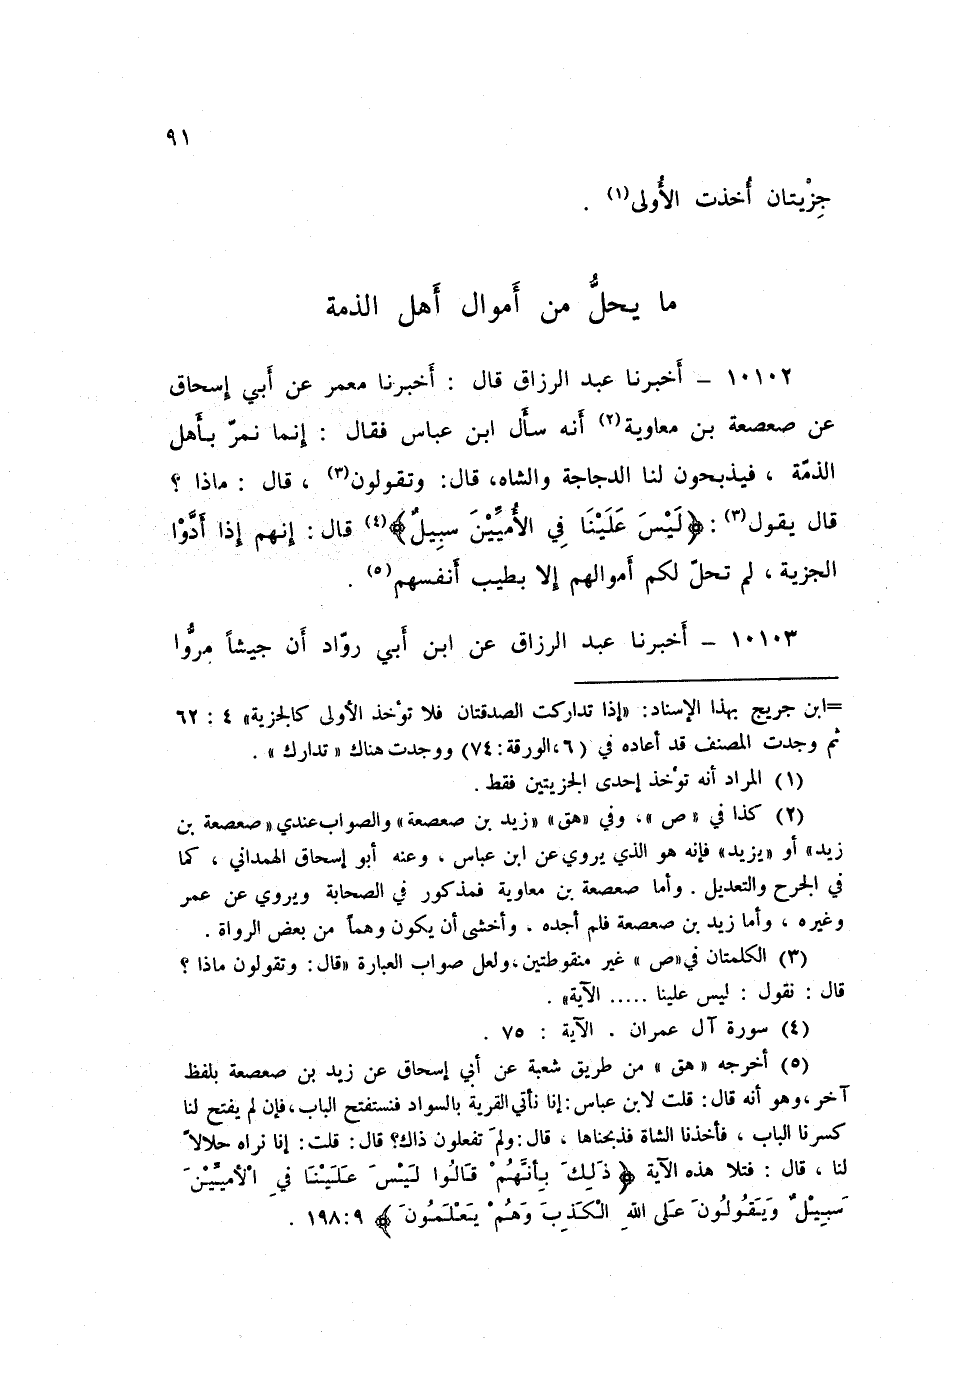 ٩١
جِزْيتان أُخذت الأُولى(١) .
ما يحلُّ من أَموال أَهل الذمة
١٠١٠٢ – أَخبرنا عبد الرزاق قال : أَخبرنا معمر عن أَبي إسحاق
عن صعصعة بن معاوية(٢) أَنه سأَل ابن عباس فقال : إنما نمرّ بأَهل
الذمّة ، فيذبحون لنا الدجاجة والشاه، قال: وتقولون(٣) ، قال : ماذا ؟
قال يقول(٣) : ﴿لَيْسَ عَلَيْنَا فِي الأُمِّيِّيْنَ سبِيلٌ﴾(٤) قال: إنهم إذا أَدَّوْا
الجزية ، لم تحلّ لكم أَموالهم إلا بطيب أَنفسهم(٥) .
١٠١٠٣ – أَخبرنا عبد الرزاق عن ابن أَبي روّاد أَن جيشاً مرُّوا
=ابن جريج بهذا الإسناد: «إذا تداركت الصدقتان فلا توٴخذ الأولى كالجزية» ٤ : ٦٢
ثم وجدت المصنف قد أعاده في (٦،الورقة:٧٤) ووجدت هناك « تدارك » .
(١) المراد أنه توٴخذ إحدى الجزيتين فقط .
(٢) كذا في « ص »، وفي «هق» «زيد بن صعصعة» والصواب عندي «صعصعة بن
زيد» أو «يزيد» فإنه هو الذي يروي عن ابن عباس ، وعنه أبو إسحاق الهمداني ، كما
في الجرح والتعديل . وأما صعصعة بن معاوية فمذكور في الصحابة ويروي عن عمر
وغيره ، وأما زيد بن صعصعة فلم أجده . وأخشى أن يكون وهماً من بعض الرواة .
(٣) الكلمتان في«ص » غير منقوطتين،ولعل صواب العبارة «قال: وتقولون ماذا ؟
قال : نقول : ليس علينا ..... الآية» .
(٤) سورة آل عمران . الآية : ٧٥ .
(٥) أخرجه « هق » من طريق شعبة عن أبي إسحاق عن زيد بن صعصعة بلفظ
آخر،وهو أنه قال: قلت لابن عباس:إنا نأتي القرية بالسواد فنستفتح الباب،فإن لم يفتح لنا
كسرنا الباب ، فأخذنا الشاة فذبحناها ، قال:ولمَ تفعلون ذاك؟ قال: قلت: إنا نراه حلالاً
لنا ، قال : فتلا هذه الآية ﴿ ذَلِكَ بِأَنَّهُمْ قَالُوا لَيْسَ عَلَيْنَا في ِ الْأُمِّيِّيْنَ
سَبِيْلٌ وَيَقُولُونَ عَلَى اللهِ الْكَذِبَ وَهُمْ يَعْلَمُونَ ﴾ ١٩٨:٩ .